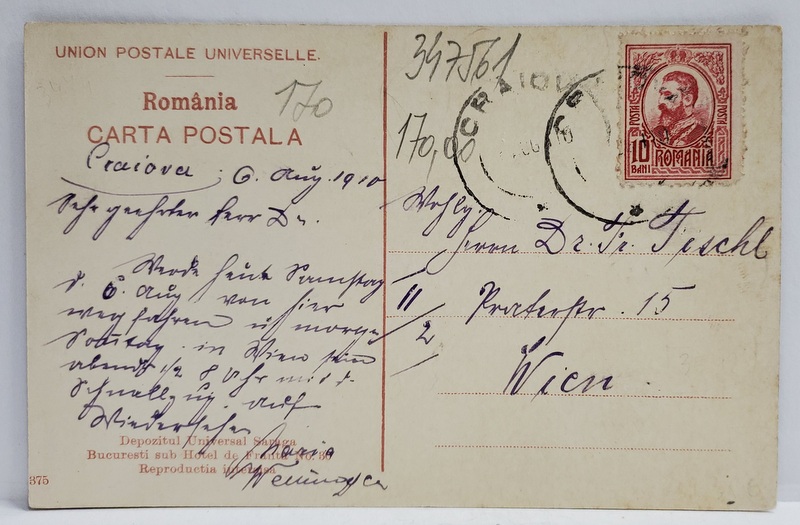 UNION POSTALE UNIVERSELLE.
România
CARTA POSTALA
170
Craiova, 6. Aug. 1910
Sehr geehrter Herr Dr.
Werde heute Samstag
d. 6. Aug von hier
wegfahren u morgen
Sonntag in Wien sein
abends 1/2 8 Uhr mit d.
Schnellzug. auf
Wiedersehen
Maria
Depozitul Universal Saraga
Bucuresti sub Hotel de Franta No. 30
Reproductia interzisa
375
347561
170,00
CRAIOVA
POSTA
POSTA
10
BANI
ROMANIA
Wohlg.
Herrn Dr. Fr. Teschl
II Praterstr. 15
2
Wien.